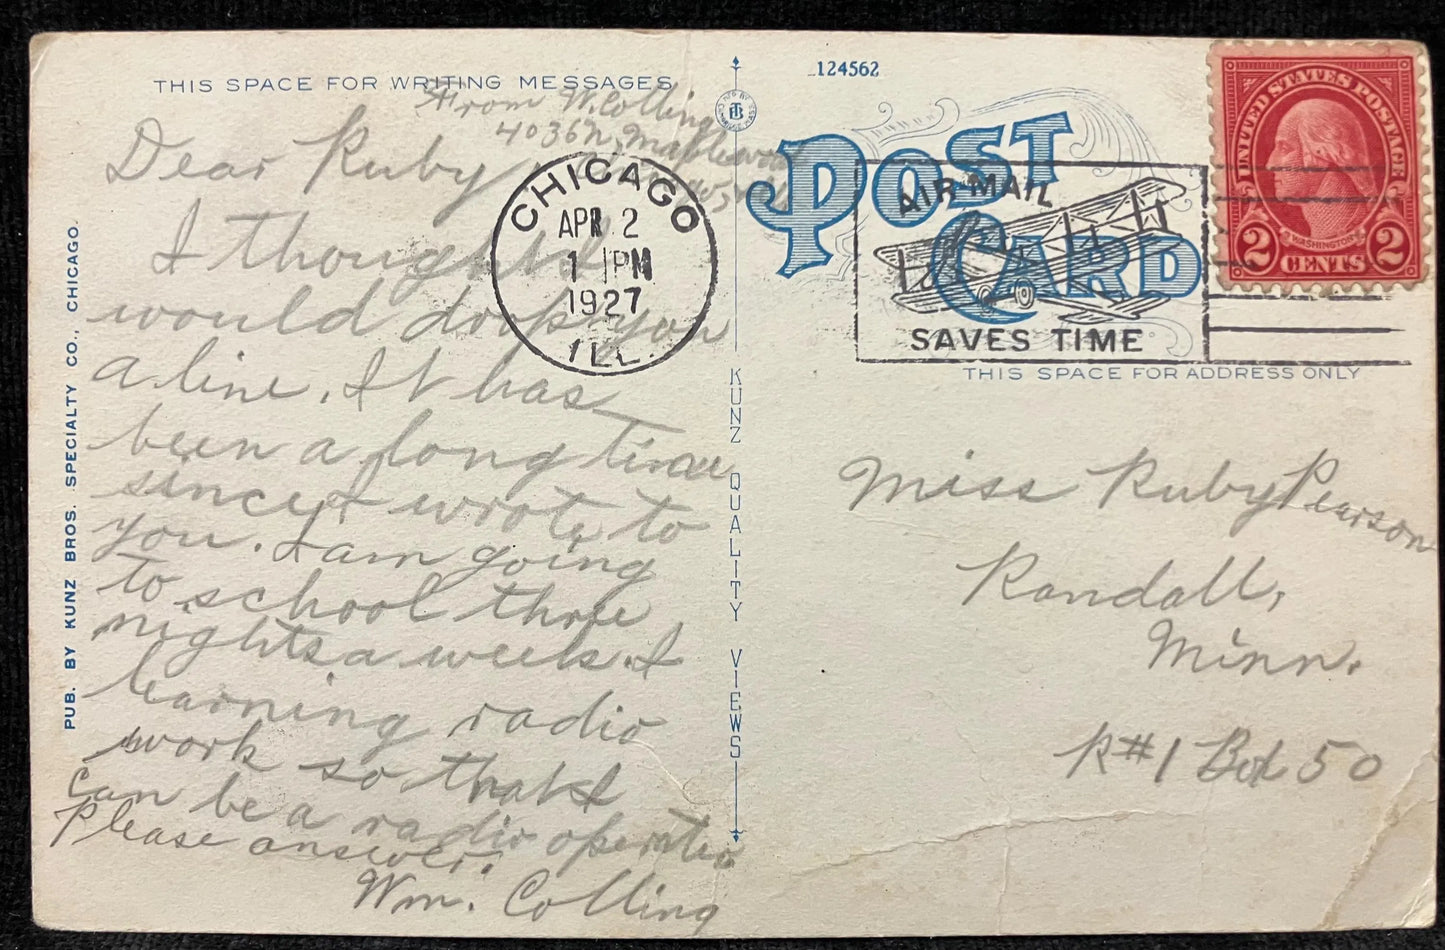 THIS SPACE FOR WRITING MESSAGES
From W. Colling
4036 N, Maplewood
Dear Ruby
I thought I
would drop you
a line. It has
been a long time
since I wrote to
you. I am going
to school three
nights a week. I
learning radio
work so that I
can be a radio operator
Please answer.
Wm. Colling
PUB. BY KUNZ BROS. SPECIALTY CO., CHICAGO.
CHICAGO
APR 2
1 PM
1927
ILL.
KUNZ QUALITY VIEWS
124562
POST
CARD
AIR MAIL
SAVES TIME
UNITED STATES POSTAGE
WASHINGTON
2 CENTS 2
THIS SPACE FOR ADDRESS ONLY
Miss Ruby Pearson
Randall,
Minn.
R#1 Box 50